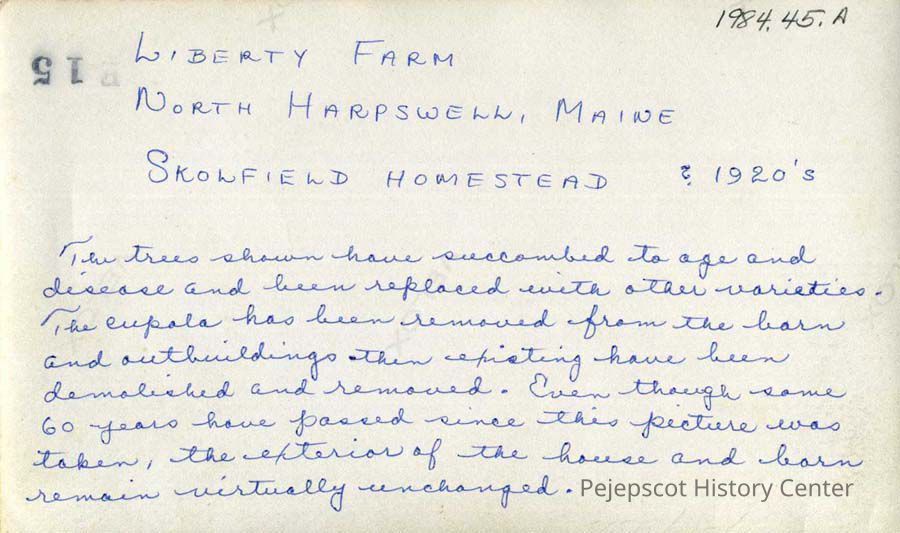 1984.45.A
15
LIBERTY FARM
NORTH HARPSWELL, MAINE
SKOLFIELD HOMESTEAD ? 1920's
The trees shown have succombed to age and
disease and been replaced with other varieties.
The cupola has been removed from the barn
and outbuildings then existing have been
demolished and removed. Even though some
60 years have passed since this picture was
taken, the exterior of the house and barn
remain virtually unchanged.
Pejepscot History Center